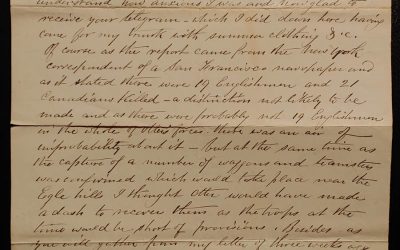 understand how anxious I was and how glad to
receive your telegram - which I did down here having
come for my trunk with summer clothing &c.
Of course as the report came from the New York
correspondent of a San Francisco newspaper and
as it stated there were 19 Englishmen and 21
Canadians killed - a distinction not likely to be
made and as there were probably not 19 Englishmen
in the whole of Otters forces there was an air of
improbability about it - but at the same time as
the capture of a number of wagons and teamsters
was confirmed which would take place near the
Eagle hills I thought Otter would have made
a dash to recover them as the troops at the
time would be short of provisions. Besides as
you will gather from my letter of three weeks ago